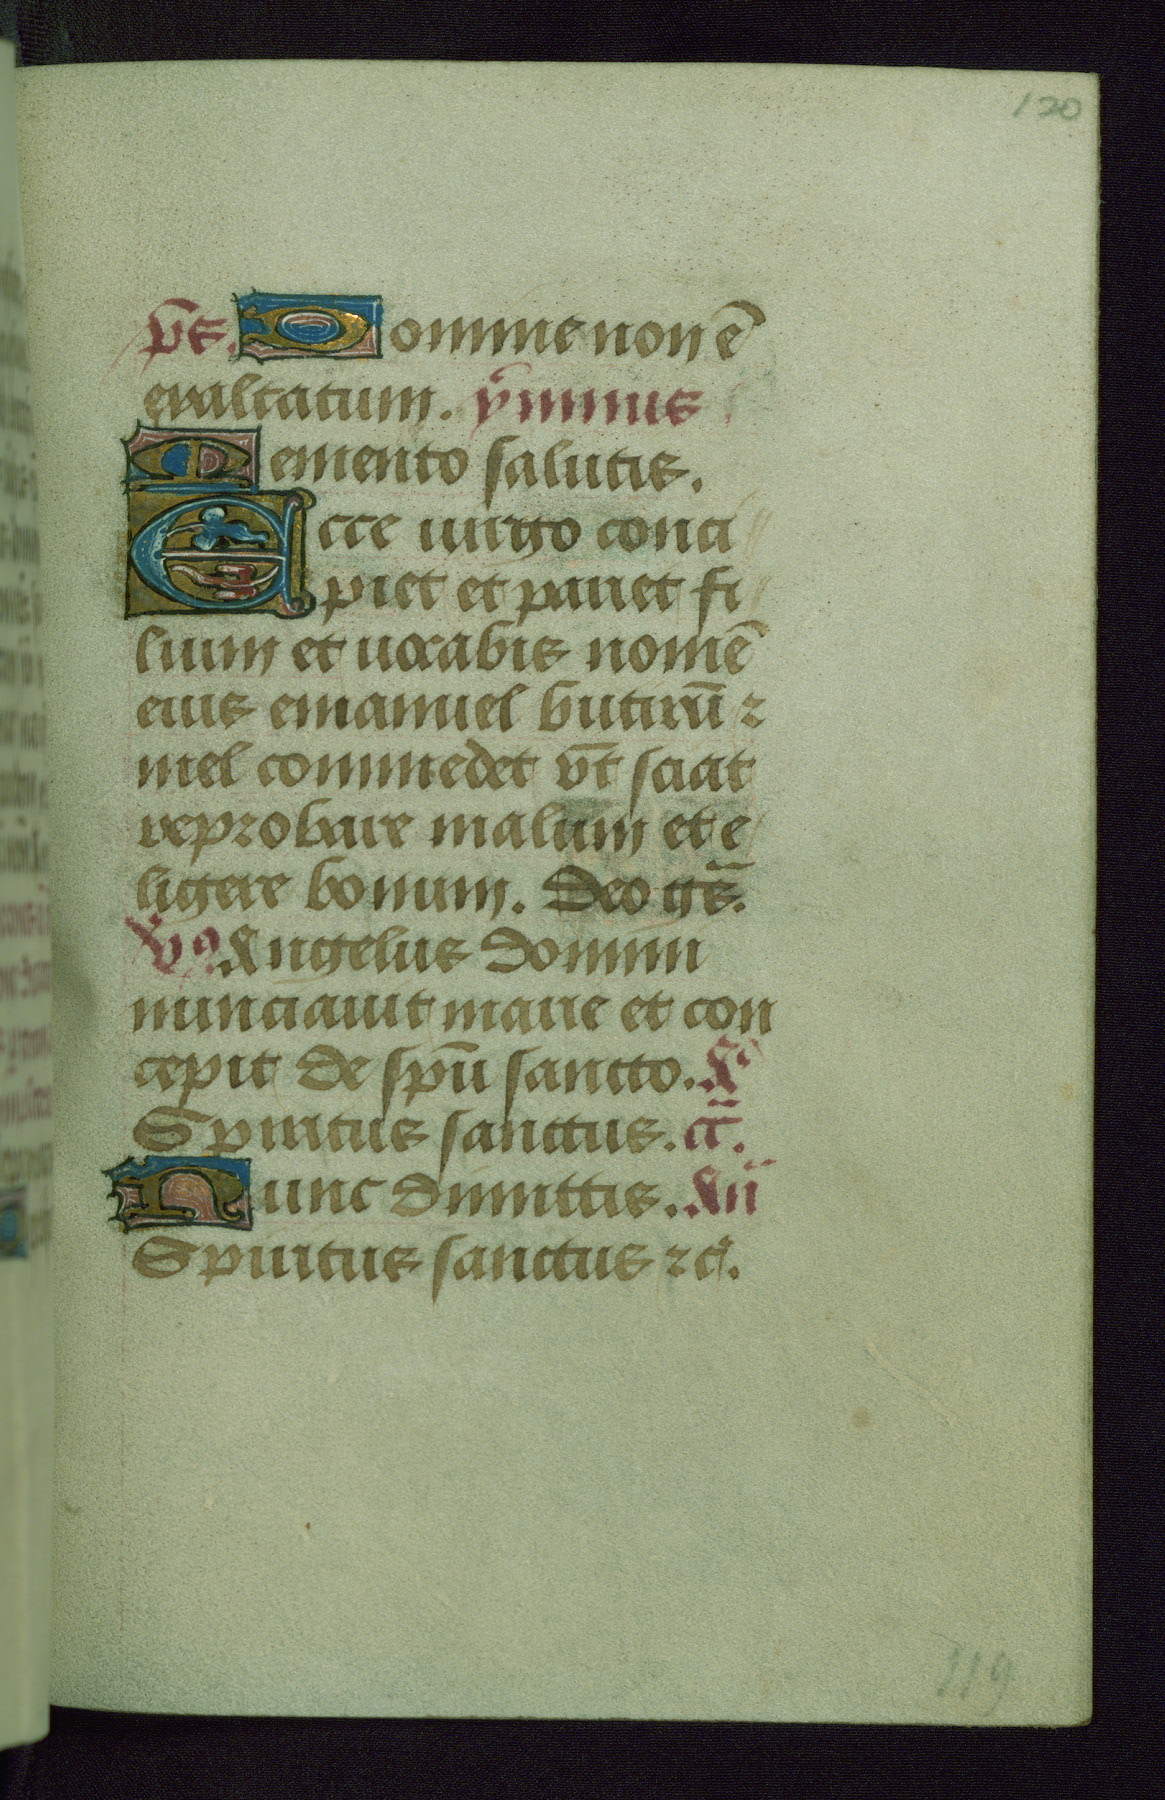 120
p̄s. Domine non ē
exaltatum. ympnus
Memento salutis.
Ecce uirgo conci
piet et pariet fi
lium et uocabis nomē
eius emanuel butirū ⁊
mel commedet vt̄ sciat
reprobare malum et e
ligere bonum. Deo gr̄s.
V9. Angelus domini
nunciauit marie et con
cepit de spū sancto. A9
Spiritus sanctus. cā.
Nunc dimittis. An̄
Spiritus sanctus ⁊c.
119